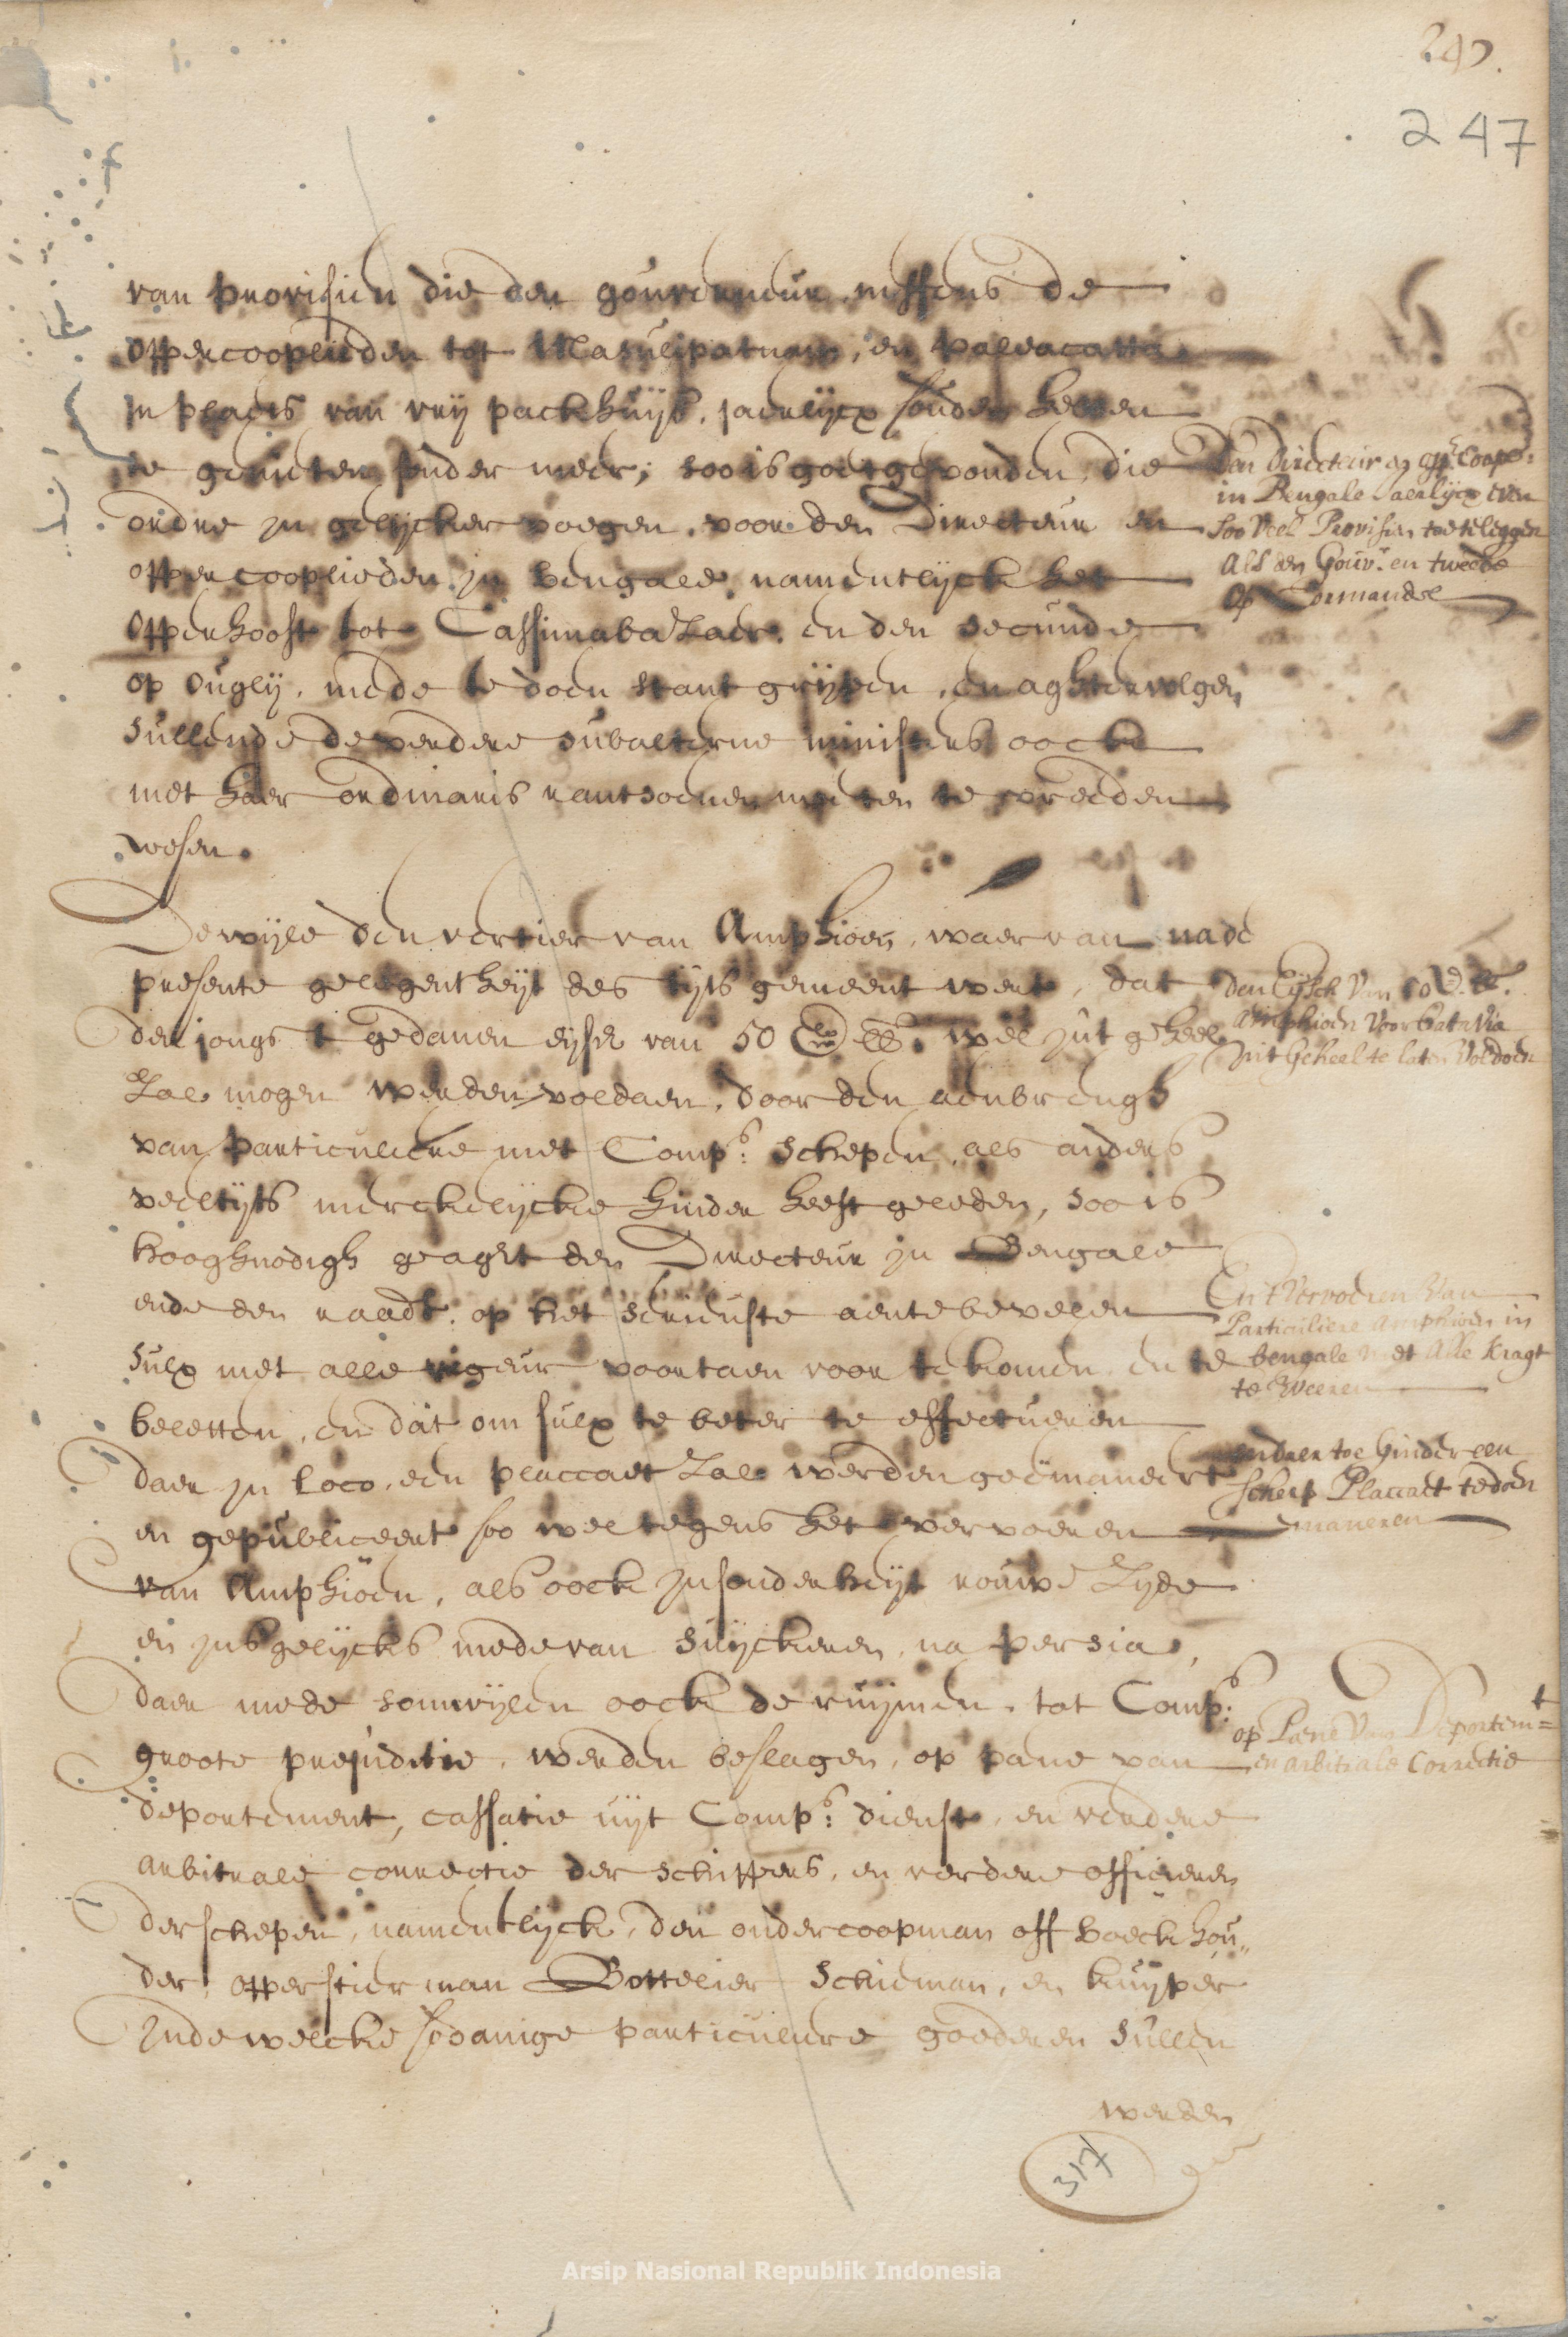 240.
247
van provisien die den gouverneur neffens de
oppercooplieden tot Masulipatnam, en Paleacatta
in plaets van vrij packhuijs, jaerlijcx sonden hebben
te genieten sonder meer; soo is goetgevonden die
ordre in gelijcker voegen, voor den Directeur en
oppercooplieden in bengale, namentlijck het
opperhooft tot Cassimabazaer, en den secunde
op ougly, mede te doen stant grijpen, en aghtervolgen
sullende de verdere subalterne ministers oock
met haer ordinaris rantsoenen moeten te vreeden
wesen.
Den Directeur en opp.r Coopl:
in Bengale Jaerlijcx even
soo veel Provisien toe te leggen
als den Gouv.r en tweede
op Cormandel
Dewijle den vertier van Amphioen, waer van na de
presente gelegentheyt des tyts gemeent wert, dat
den jongst gedanen eysch van 50 lb. wel in 't geheel
zal mogen werden voldaen, door den aenbrengh
van particuliere met Comp.s schepen, als anders
veeltijts merckelijcke hinder heeft geleden, soo is
hooghnodigh geaght den Directeur in Bengale
ende den raadt, op het serieuste aen te bevelen
sulx met alle vigeur voortaen voor te komen, en te
beletten, en dat om sulx te beter te effectueren
daer in loco, een placcaet zal werden geëmaneert
en gepubliceert soo wel tegens het vervoeren
van Amphioen, als oock insonderheijt rouwe zyde
en insgelijcks mede van suijckeren, na Persia,
daer mede somwijlen oock de ruijmen, tot Comp.s
groote prejuditie, werden beslagen, op pæne van
deportement, cassatie uijt Comp.s dienst, en verdere
arbitrale correctie der schippers, en verdere officieren
der schepen, namentlijck, den ondercoopman off boeckhou„
der, opperstierman Bottelier Schieman, en kuijper
In de welcke sodanige particuliere goederen sullen
werden
den Eijsch van 50 lb.
amphioen voor batavia
in 't geheel te laten voldoen
En 't Vervoeren van
Particuliere amphioen in
bengale met alle kragt
te Weeren
en daer toe ginder een
scherp Placcaet te doen
emaneren
op Pæne van Deportem.t
en arbitrale Correctie
317
Arsip Nasional Republik Indonesia